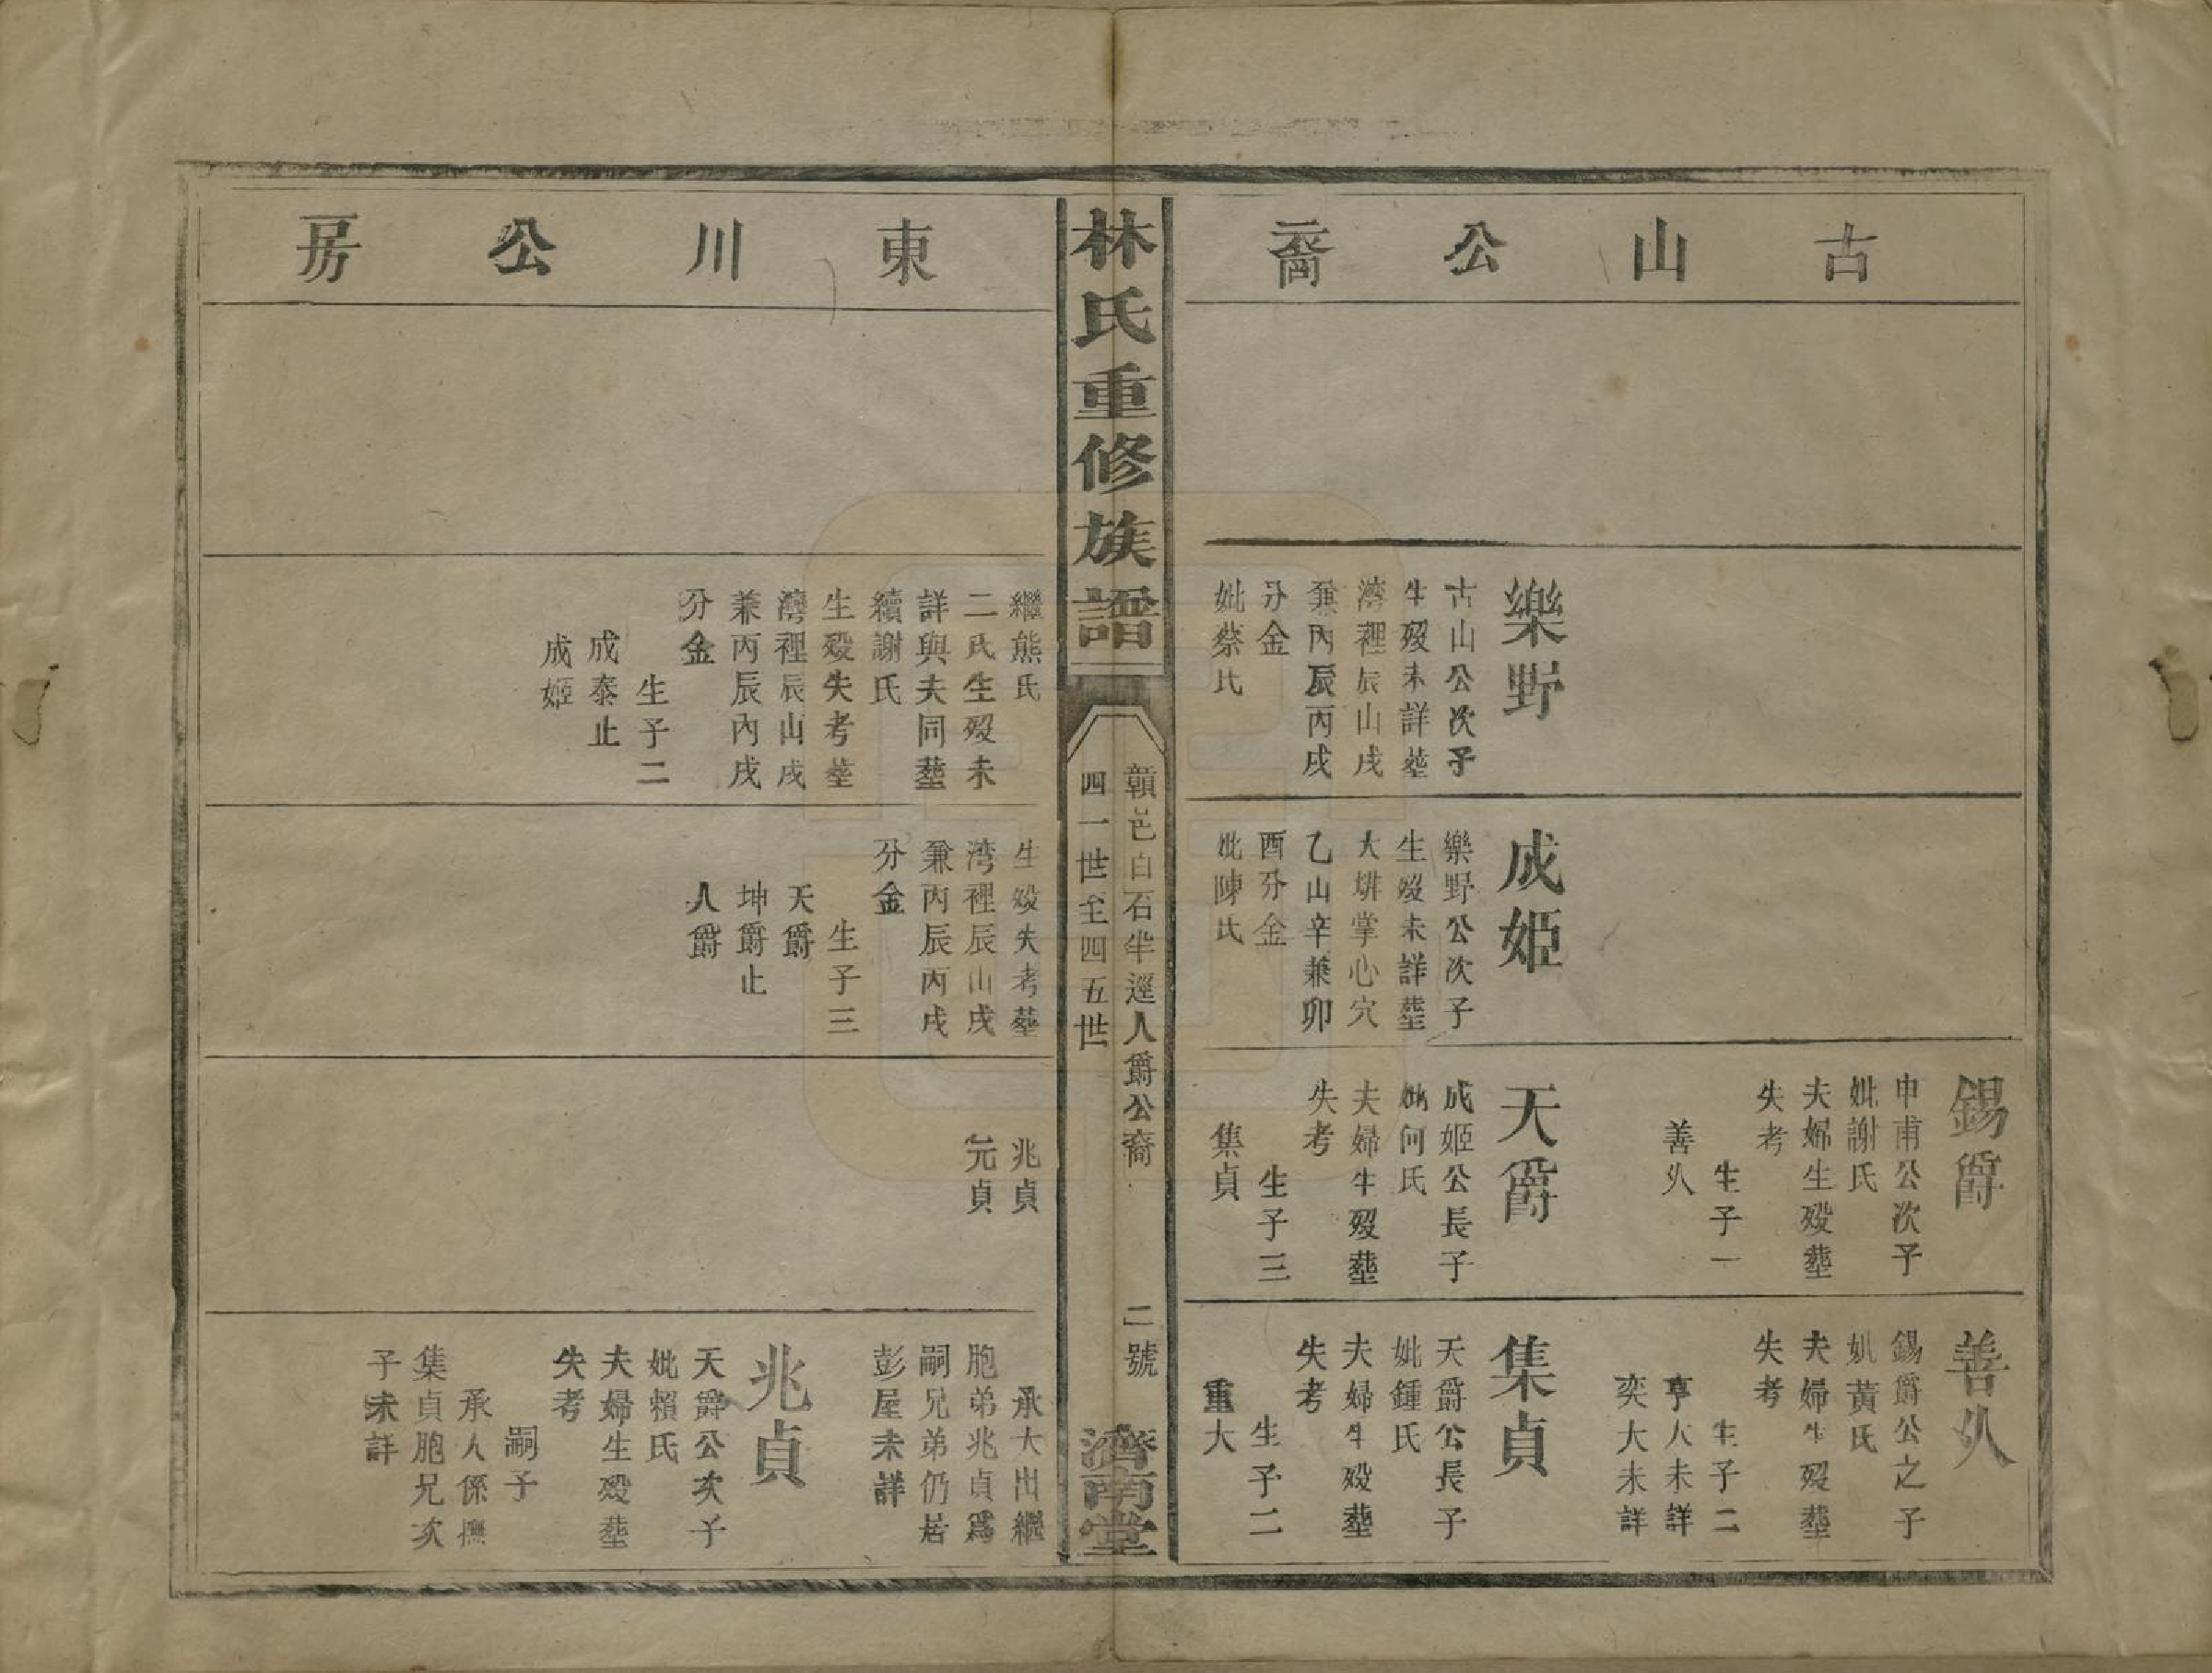 古山公裔
樂野
古山公次子
生歿未詳塟
湾裡辰山戌
兼丙辰丙戌
分金
妣蔡氏
成姬
樂野公次子
生歿未詳塟
大塀掌心穴
乙山辛兼卯
酉分金
妣陳氏
錫爵
申甫公次子
妣謝氏
夫婦生歿塟
失考
生子一
善久
天爵
成姬公長子
妣何氏
夫婦生歿塟
失考
生子三
集貞
善久
錫爵公之子
妣黃氏
夫婦生歿塟
失考
生子二
亨大未詳
奕大未詳
集貞
天爵公長子
妣鍾氏
夫婦生歿塟
失考
生子二
重大
林氏重修族譜
贛邑白石坐逕人爵公裔
四一世至四五世
二號
濟南堂
東川公房
繼熊氏
二氏生歿未
詳與夫同塟
續謝氏
生歿失考塟
灣裡辰山戌
兼丙辰丙戌
分金
生子二
成泰止
成姬
生歿失考塟
湾裡辰山戌
兼丙辰丙戌
分金
生子三
天爵
坤爵止
人爵
兆貞
元貞
承大出繼
胞弟兆貞爲
嗣兄弟仍居
彭屋未詳
兆貞
天爵公次子
妣賴氏
夫婦生歿塟
失考
嗣子
承大係撫
集貞胞兄次
子未詳